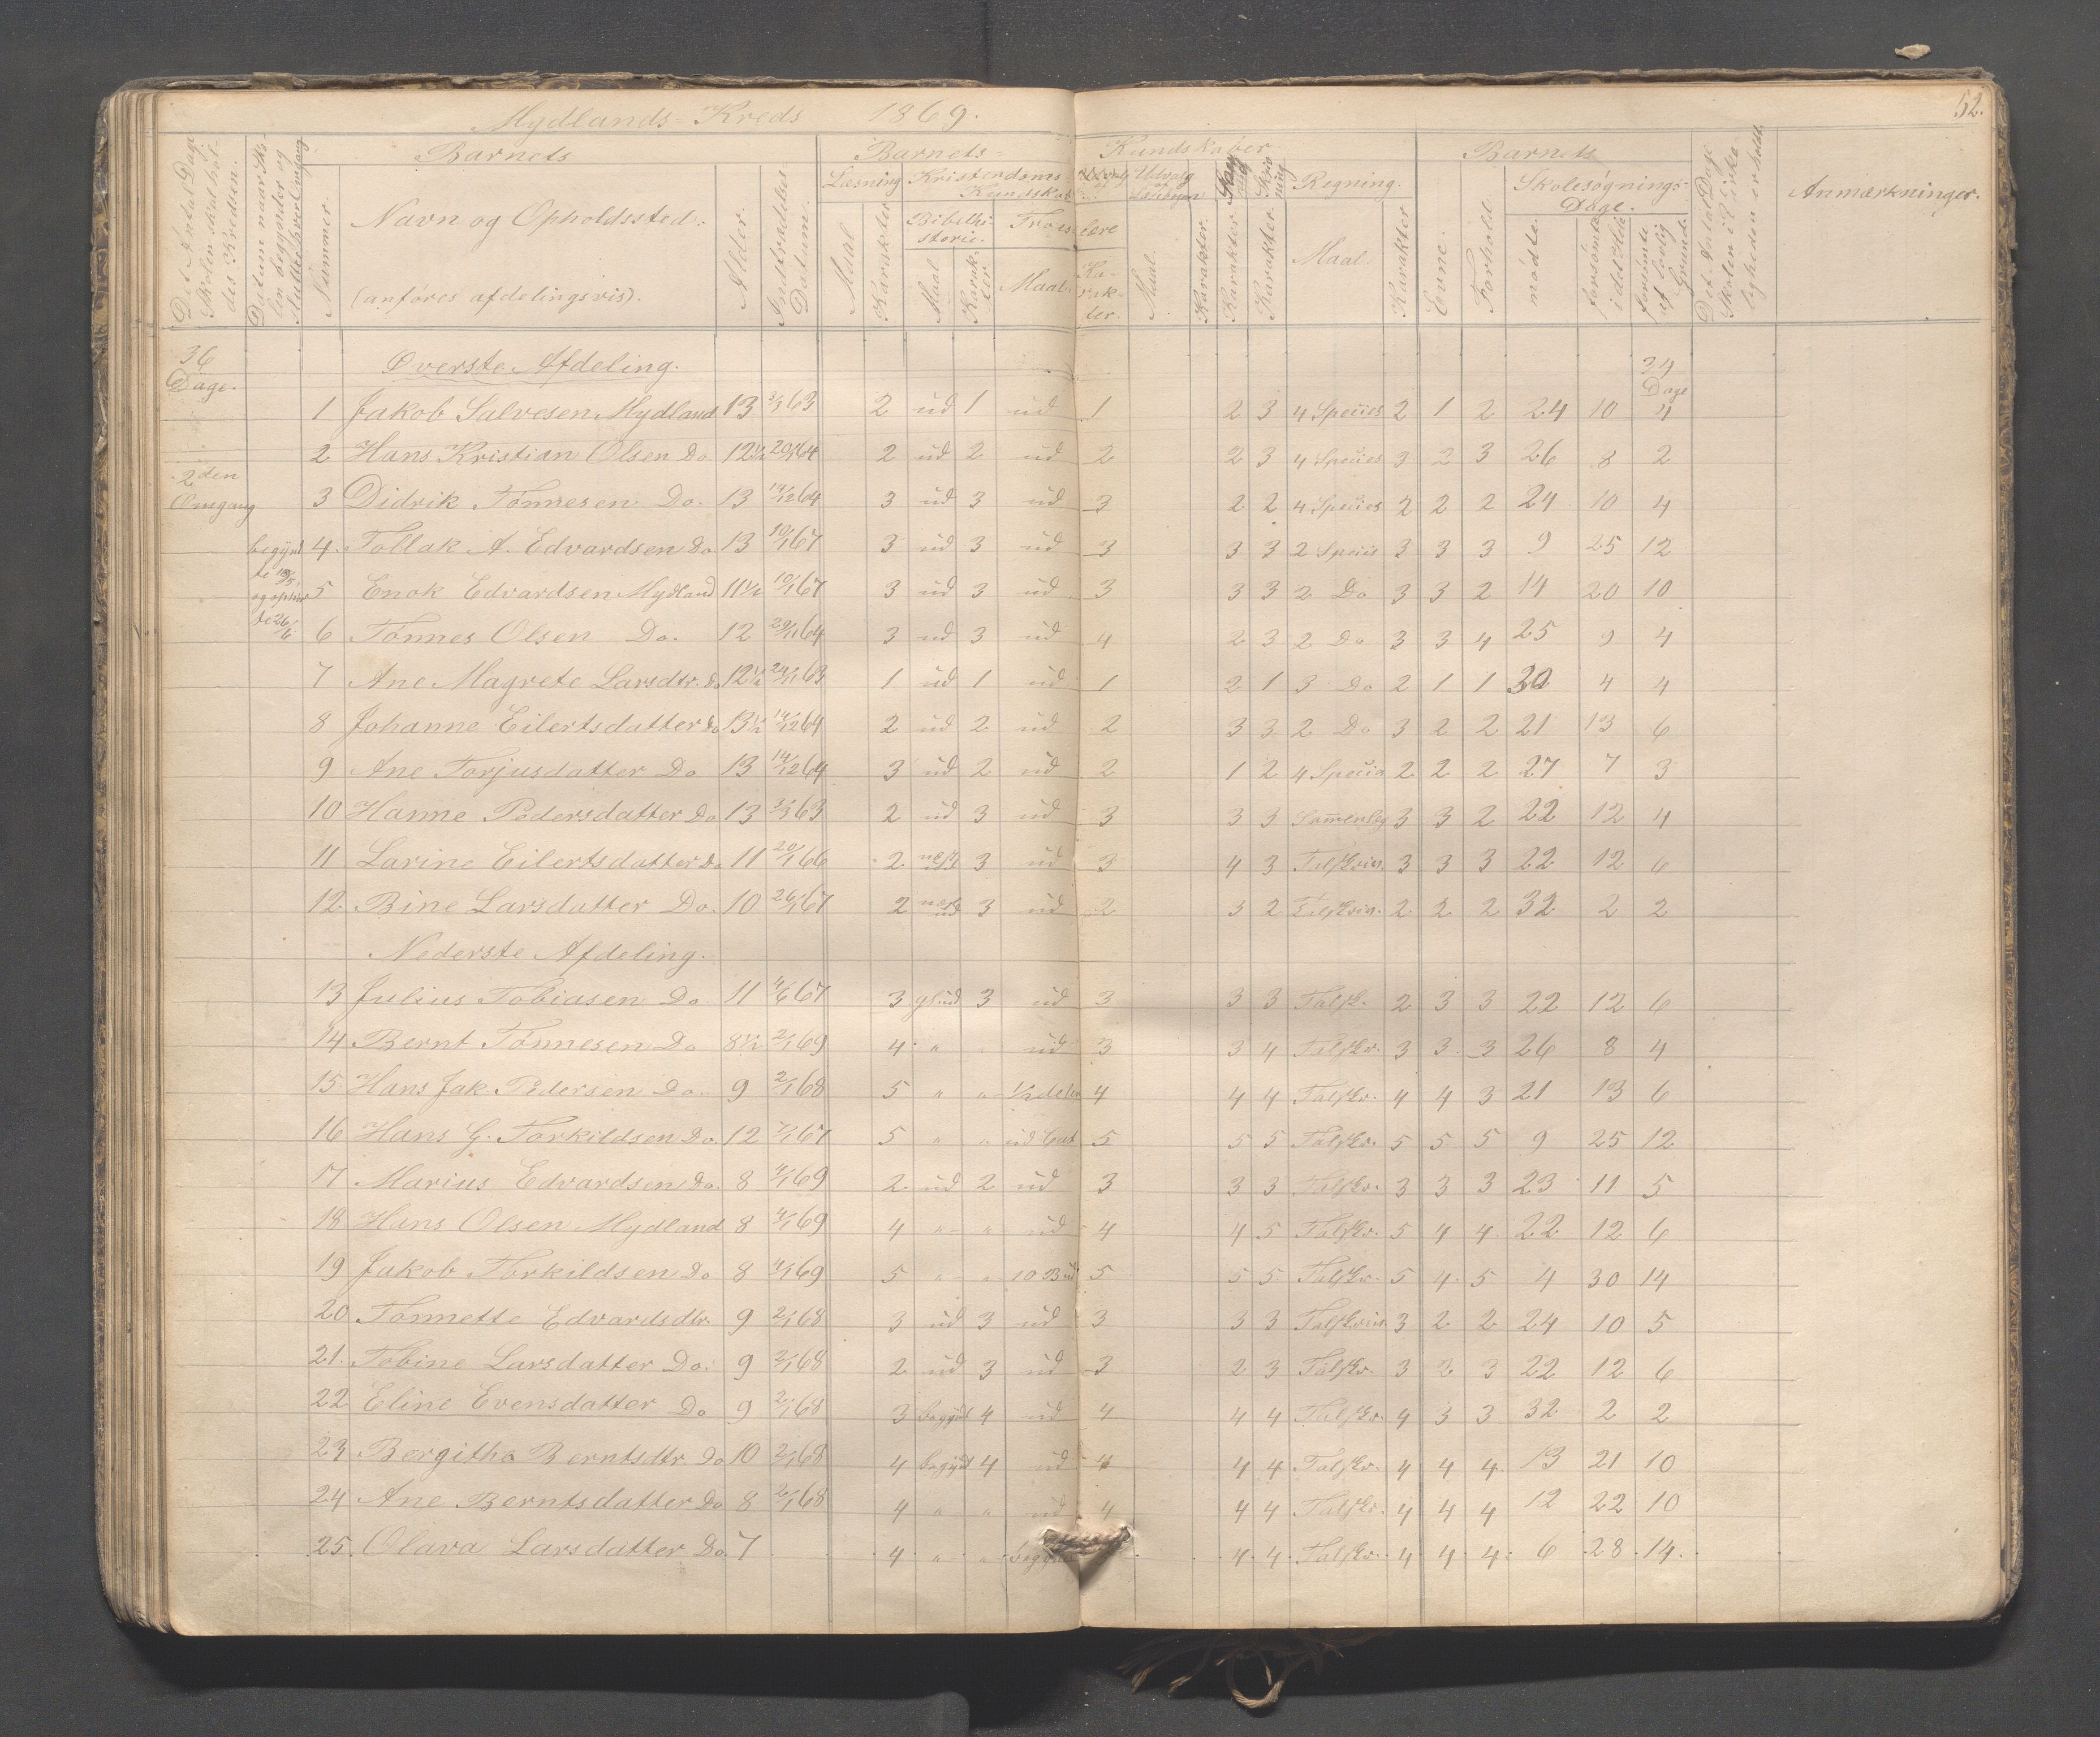 Mydlands-Kreds 1869.
52.
Det Antal Dage Skolen skal holdes i Kredsen.
Datum naar Skolen begynder og slutter hver Omgang.
Nummer.
Barnets
Navn og Opholdssted.
(anføres afdelingsvis).
Alder.
Indtrædelses Datum.
Barnets Kundskaber
Læsning Kristendoms-Kundskab
Maal Karakter
Bibelhistorie. Troeslære
Maal Karakter. Maal. Karakter.
Udvalg af Læsebogen
Maal. Karakter.
Sang Karakter
Skrivning Karakter.
Regning.
Maal. Karakter
Barnets
Evne. Forhold.
Skolesøgnings-Dage.
mødte. forsømte i det Hele forsømte af lovlig Grund.
Det Antal Dage Skolen i Virkeligheden er holdt.
Anmærkninger.
36 Dage.
Øverste Afdeling.
34 Dage
1 Jakob Salvesen Mydland 13 63 2 ud 1 ud 1 2 3 4 Species 2 1 2 24 10 4
2 Hans Kristian Olsen Do 12½ 20/1 64 2 ud 2 ud 2 2 3 4 Species 3 2 3 26 8 2
2den Omgang
3 Didrik Tønnesen Do. 13 14/12 64 3 ud 3 ud 3 2 2 4 Species 2 2 2 24 10 4
begyndte
4. Tollak A. Edvardsen Do 13 10/1 67 3 ud 3 ud 3 3 3 2 Species 3 3 3 9 25 12
5 Enok Edvardsen Mydland 11½ 10/1 67 3 ud 3 ud 3 3 3 2 Do 3 3 2 14 20 10
26/6
6 Tønnes Olsen Do. 12 29/11 64 3 ud 3 ud 4 2 3 2 Do 3 3 4 25 9 4
7 Ane Magrete Larsdtr. Do 12½ 24/11 63 1 ud 1 ud 1 2 1 3 Do 2 1 1 30 4 4
8 Johanne Eilertsdatter Do 13½ 14/12 64 2 ud 2 ud 2 3 3 2 Do 3 2 2 21 13 6
9 Ane Torjusdatter Do 13 14/12 64 3 ud 2 ud 2 1 2 4 Specia 2 2 2 27 7 3
10 Hanne Pedersdatter Do 13 63 2 ud 3 ud 3 3 3 Sammenlæg 3 3 2 22 12 4
11 Larine Eilertsdatter Do 11 20/1 66 2 3 ud 3 4 3 Talskriv. 3 3 3 22 12 6
12. Bine Larsdatter Do. 10 26/1 67 2 3 ud 2 3 2 Talskriv. 2 2 2 32 2 2
Nederste Afdeling.
13 Julius Tobiasen Do 11 4/6 67 3 3 ud 3 3 3 Talsk. 2 3 3 22 12 6
14 Bernt Tønnesen Do 8½ 2/1 69 4 " ud 3 3 4 Talskr. 3 3 3 26 8 4
15 Hans Jak. Pedersen Do. 9 2/1 68 5 " " 4 4 4 Talskr. 4 4 3 21 13 6
16 Hans G. Torkildsen Do. 12 67 5 " " 5 5 5 Talskr. 5 5 5 9 25 12
17 Marius Edvardsen Do. 8 4/1 69 2 ud 2 ud 3 3 3 Talskr. 3 3 3 23 11 5
18 Hans Olsen Mydland 8 4/1 69 4 " " ud 4 4 5 Talskr. 5 4 4 22 12 6
19 Jakob Torkildsen Do 8 4/1 69 5 " " 10 B ud 5 5 5 Talskr. 5 4 5 4 30 14
20 Tønnette Edvardsdtr. 9 2/1 68 3 ud 3 ud 3 3 3 Talskriv. 3 2 2 24 10 5
21. Tobine Larsdatter Do. 9 2/1 68 2 ud 3 ud 3 2 3 Talskr. 3 2 3 22 12 6
22 Eline Evensdatter Do 9 2/1 68 3 begynt 4 ud 4 4 4 Talskr. 4 3 3 32 2 2
23 Bergitha Berntsdtr. Do 10 2/1 68 4 begynt 4 ud 4 4 4 Talskr. 4 4 4 13 21 10
24 Ane Berntsdatter Do 8 2/1 68 4 " " ud 4 4 4 Talskr. 4 4 4 12 22 10
25. Olava Larsdatter Do 7 4 " " 4 4 Talskr. 4 4 4 6 28 14.